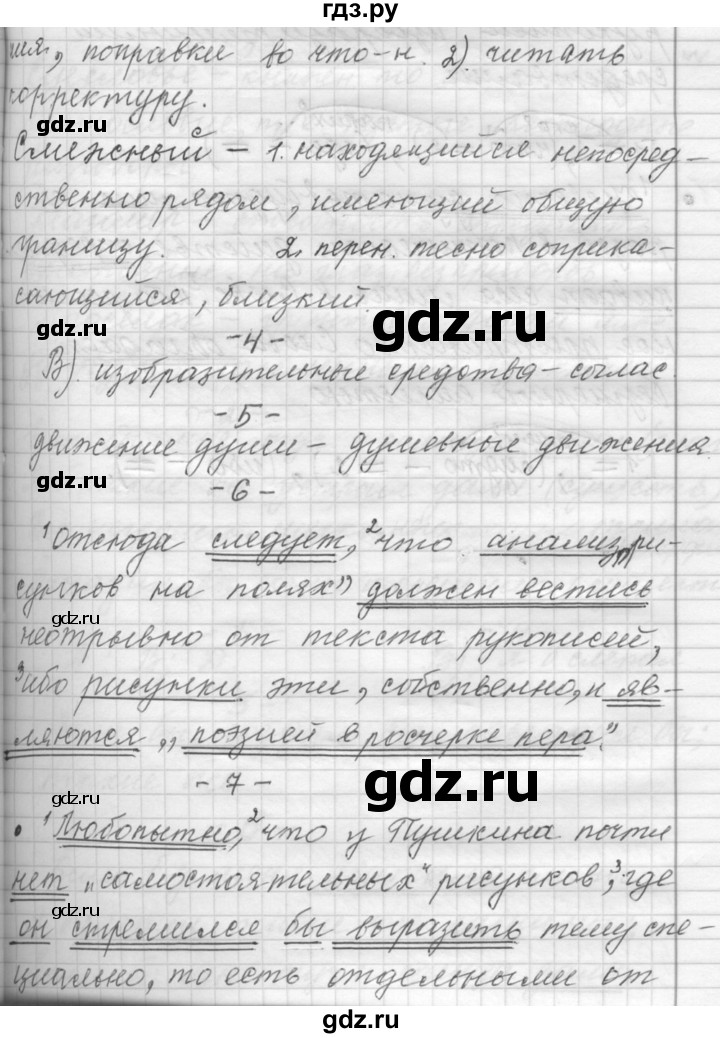 гдз.ру
ия, поправки во что-н. 2). читать
корректуру.
gdz.ru
Смежный – 1. находящийся непосред–
ственно рядом, имеющий общую
границу. 2. перен. тесно соприка–
сающийся, близкий.
gdz.ru
gdz.ru
-4-
В). изобразительные средства – соглас.
-5-
движение души – душевные движения
gdz.ru
-6-
1 Отсюда следует, 2 что анализ „ри–
сунков на полях" должен вестись
gdz.ru
неотрывно от текста рукописей,
3 ибо рисунки эти, собственно, и яв–
ляются „поэзией в росчерке пера."
-7-
gdz.ru
gdz.ru
• 1 Любопытно, 2 что у Пушкина почти
нет „самостоятельных" рисунков, 3 где
gdz.ru
он стремился бы выразить тему спе–
циально, то есть отдельными от
gdz.ru
gdz.ru